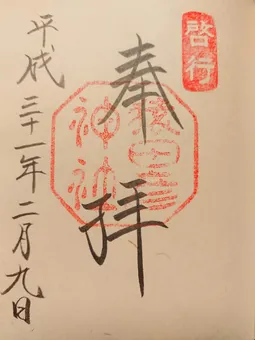 啓行
奉拝
猿田彦
神社
平成三十一年二月九日